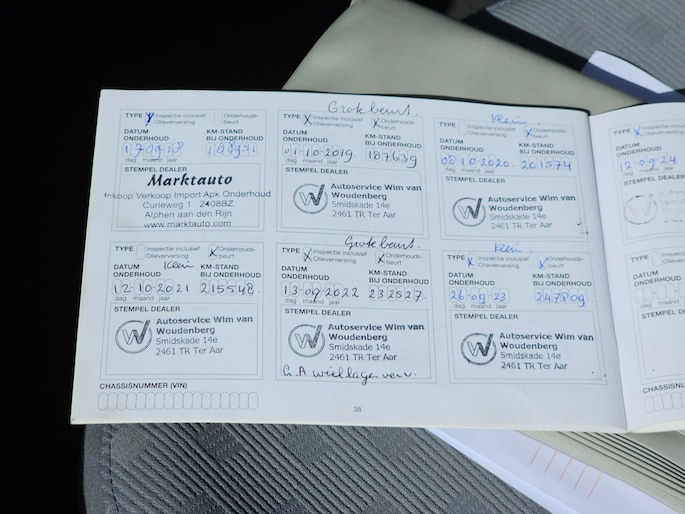 Grote beurt.
TYPE X Inspectie inclusief Olieverversing Onderhoudsbeurt
DATUM ONDERHOUD
KM-STAND BIJ ONDERHOUD
17 09 18
dag maand jaar
STEMPEL DEALER
Marktauto
Inkoop Verkoop Import Apk Onderhoud
Curieweg 1 2408BZ
Alphen aan den Rijn
www.marktauto.com
TYPE X Inspectie inclusief Olieverversing X Onderhoudsbeurt
DATUM ONDERHOUD
KM-STAND BIJ ONDERHOUD
01-10-2019. 187639
dag maand jaar
STEMPEL DEALER
Autoservice Wim van
Woudenberg
Smidskade 14e
2461 TR Ter Aar
Klein
TYPE Inspectie inclusief Olieverversing X Onderhoudsbeurt
DATUM ONDERHOUD
KM-STAND BIJ ONDERHOUD
08-10-2020. 201574
dag maand jaar
STEMPEL DEALER
Autoservice Wim van
Woudenberg
Smidskade 14e
2461 TR Ter Aar
TYPE X
DATUM
ONDERHOUD
12-09-24
dag maand jaar
STEMPEL DEALER
TYPE Inspectie inclusief Olieverversing X Onderhoudsbeurt
Klein
DATUM ONDERHOUD
KM-STAND BIJ ONDERHOUD
12-10-2021 215548.
dag maand jaar
STEMPEL DEALER
Autoservice Wim van
Woudenberg
Smidskade 14e
2461 TR Ter Aar
Grote beurt.
TYPE X Inspectie inclusief Olieverversing X Onderhoudsbeurt
DATUM ONDERHOUD
KM-STAND BIJ ONDERHOUD
13-09-2022 232527.
dag maand jaar
STEMPEL DEALER
Autoservice Wim van
Woudenberg
Smidskade 14e
2461 TR Ter Aar
G.A wiellager verv.
Klein.
TYPE X Inspectie inclusief Olieverversing X Onderhoudsbeurt
DATUM ONDERHOUD
KM-STAND BIJ ONDERHOUD
26-09-23 247809
dag maand jaar
STEMPEL DEALER
Autoservice Wim van
Woudenberg
Smidskade 14e
2461 TR Ter Aar
TYPE
DATUM
ONDERHOUD
dag
STEMPEL
CHASSISNUMMER (VIN)
38